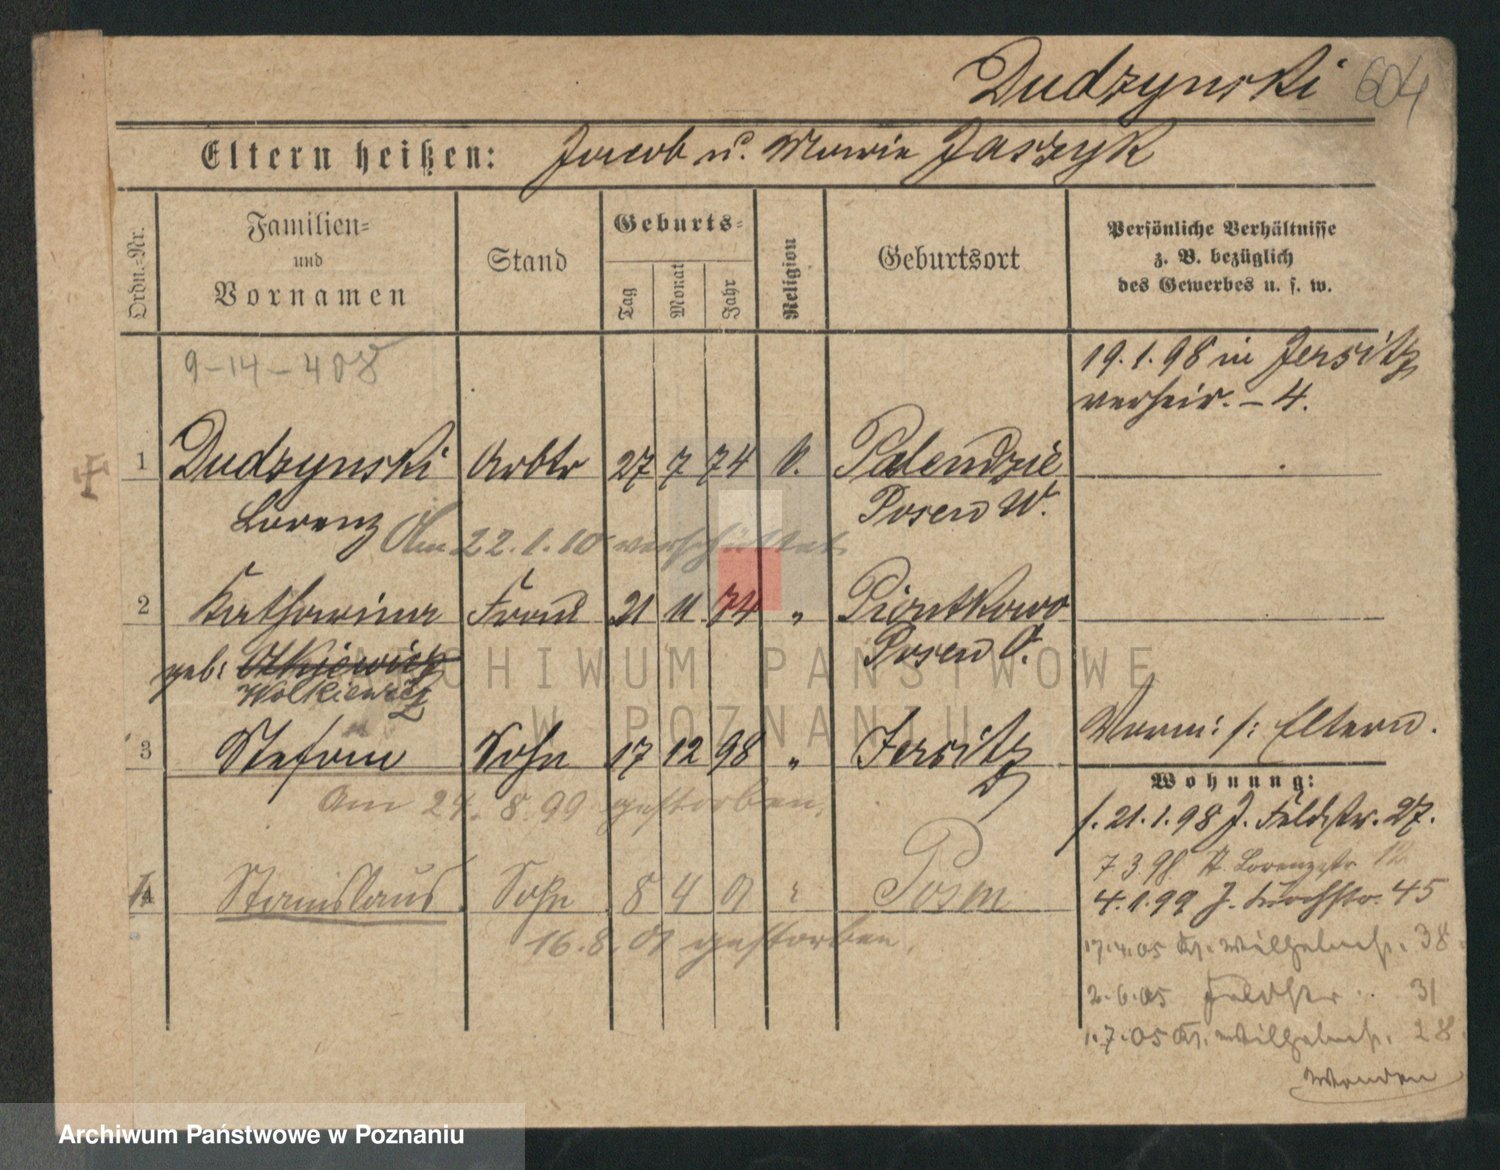 Dudzynski 604
Eltern heißen: Jacob u. Marie Jaszyk
Ordn.-Nr.
Familien-
und
Vornamen
Stand
Geburts-
Tag
Monat
Jahr
Religion
Geburtsort
Persönliche Verhältnisse
z. B. bezüglich
des Gewerbes u. s. w.
9-14-408
19.1.98 in Jersitz
verheir. - 4.
1 Dudzynski Arbtr 27 7 74 k. Palendzie
Lorenz Posen W.
Am 22.1.10 verschüttet
2 Katharina Frau 21 11 74 " Piontkowo
geb: Posen O.
Wolkiewicz
3 Stefan Sohn 17 12 98 " Jersitz
Am 24.8.99 gestorben.
Vorm: s: Eltern.
Wohnung:
s. 21.1.98 J. Feldstr. 27.
7 3 98 St. Lorenzstr 12
4.1.99 J. Kirchstr. 45
4 Stanislaus Sohn 8 4 01 " Posen
16.8.01 gestorben.
17.4.05 Kr. Wilhelmstr. 38.
2.6.05 Feldstr. 31
1.7.05 Kr. Wilhelmstr. 28
Wenden
ARCHIWUM PAŃSTWOWE
W POZNANIU
Archiwum Państwowe w Poznaniu